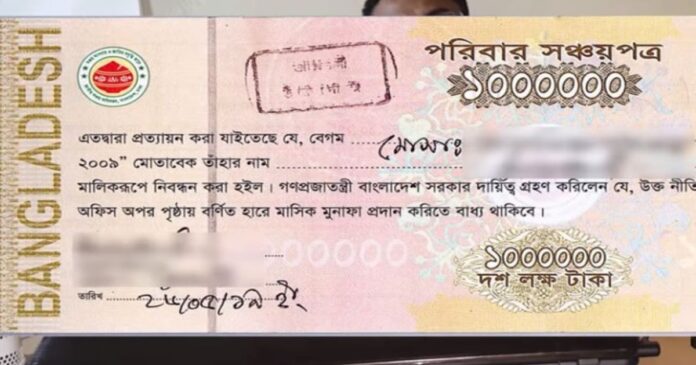 BANGLADESH
পরিবার সঞ্চয়পত্র
১০০০০০০
এতদ্বারা প্রত্যায়ন করা যাইতেছে যে, বেগম মোসাঃ
২০০৯” মোতাবেক তাঁহার নাম
মালিকরূপে নিবন্ধন করা হইল। গণপ্রজাতন্ত্রী বাংলাদেশ সরকার দায়িত্ব গ্রহণ করিলেন যে, উক্ত নীতি
অফিস অপর পৃষ্ঠায় বর্ণিত হারে মাসিক মুনাফা প্রদান করিতে বাধ্য থাকিবে।
১০০০০০০
১০০০০০০
দশ লক্ষ টাকা
তারিখ